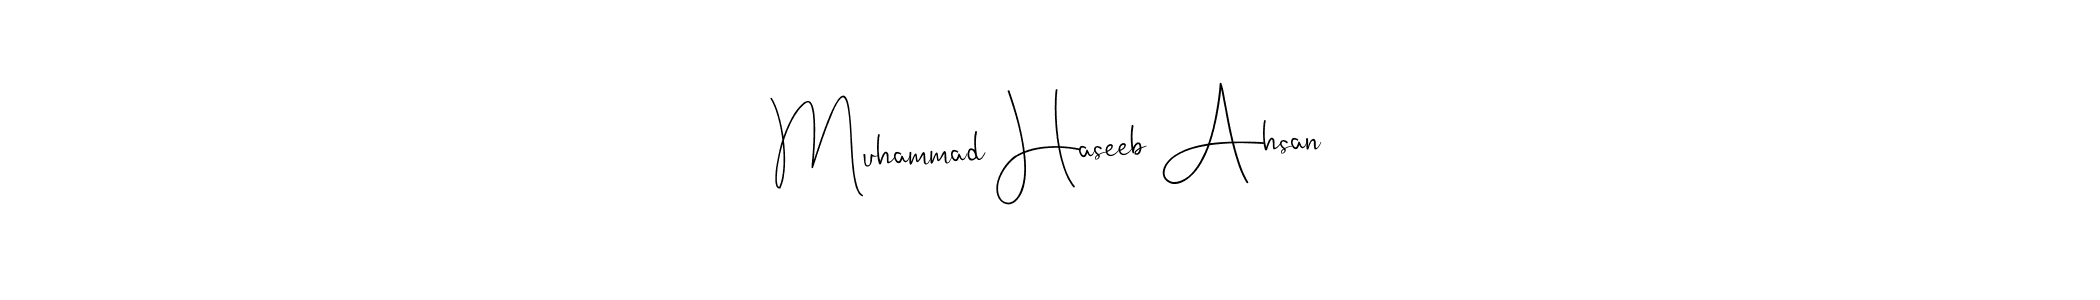 Muhammad Haseeb Ahsan